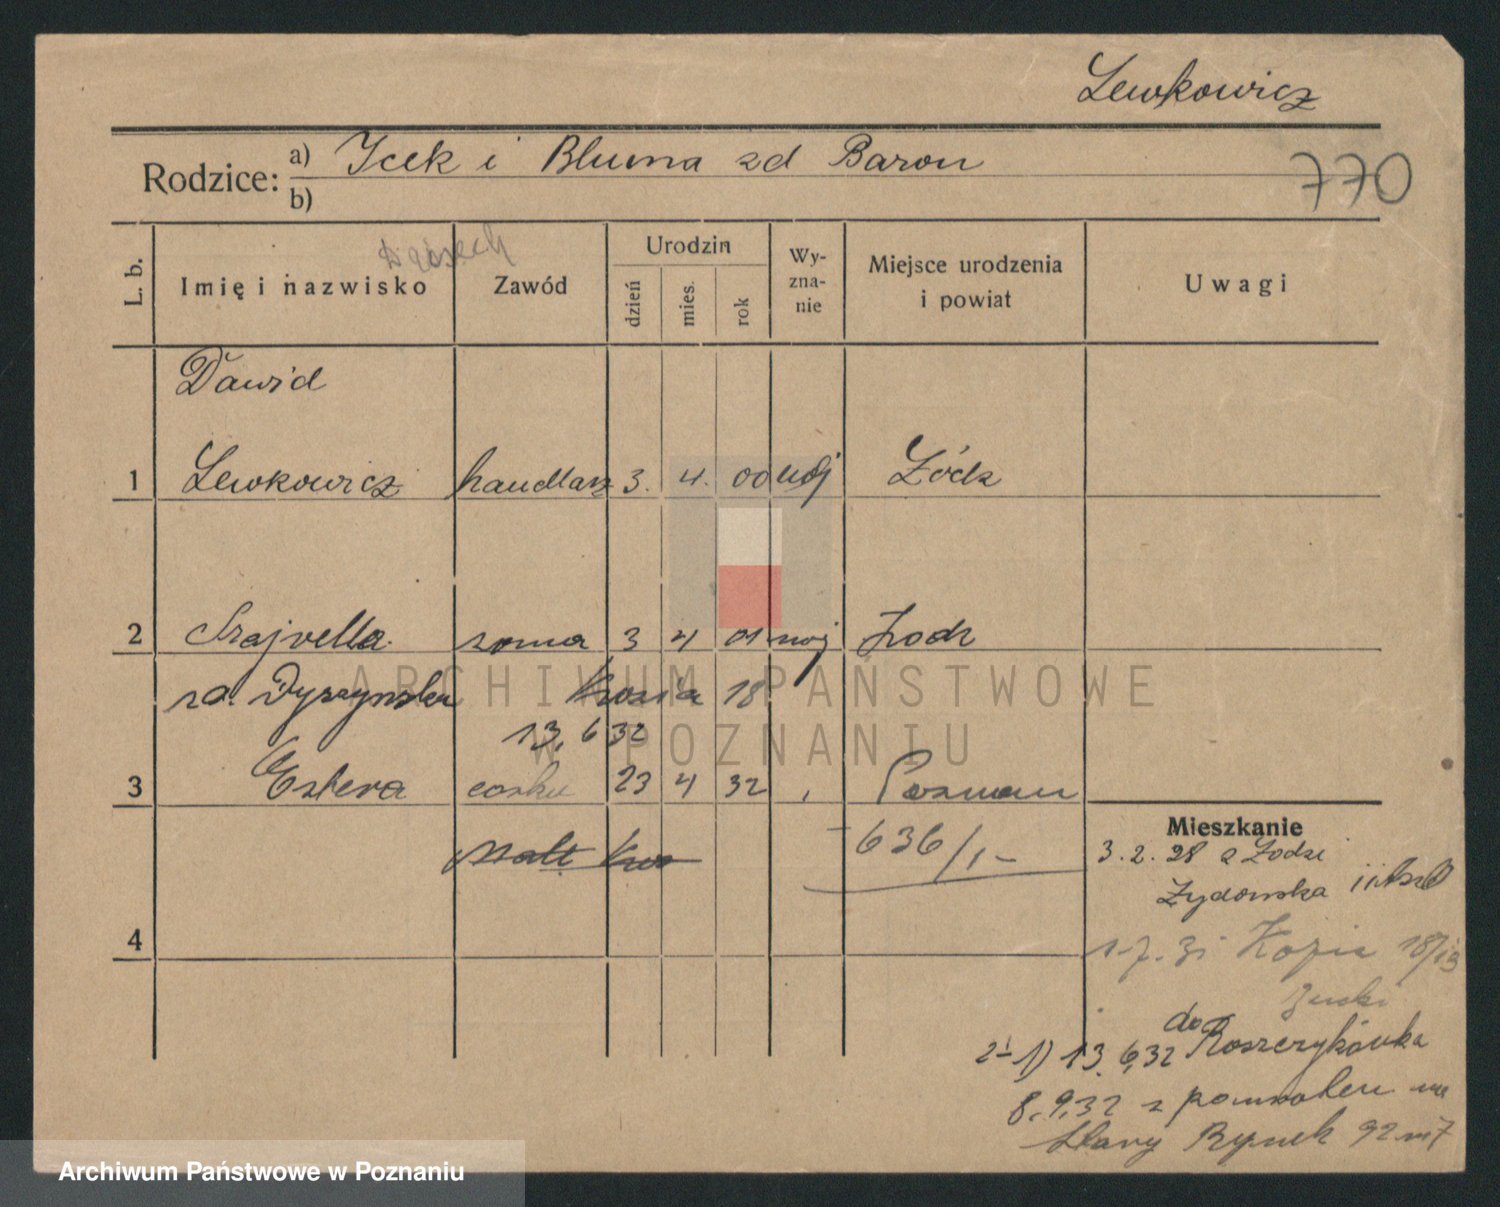 Lewkowicz
Rodzice: a) Icek i Bluma zd Baron
b)
770
L. b.
Imię i nazwisko
Zawód
Urodzin
dzień
mies.
rok
Wy-
zna-
nie
Miejsce urodzenia
i powiat
Uwagi
Dawid
1 Lewkowicz handlarz 3. 4. 00 moj Łódz
2 Szajvella zona 3 4 01 moj Łodz
zd. Dyszynska 18
13, 6 32
3 Estera corka 23 4 32 Poznan
636/1-
4
Mieszkanie
3. 2. 28 z Łodzi
Żydowska
1.7.31 18/19
do
2 i 1) 13. 6,32 Roszczykówka
8.9.32 z powrotem na
Stary Rynek 92 m 7
ARCHIWUM PAŃSTWOWE
W POZNANIU
Archiwum Państwowe w Poznaniu